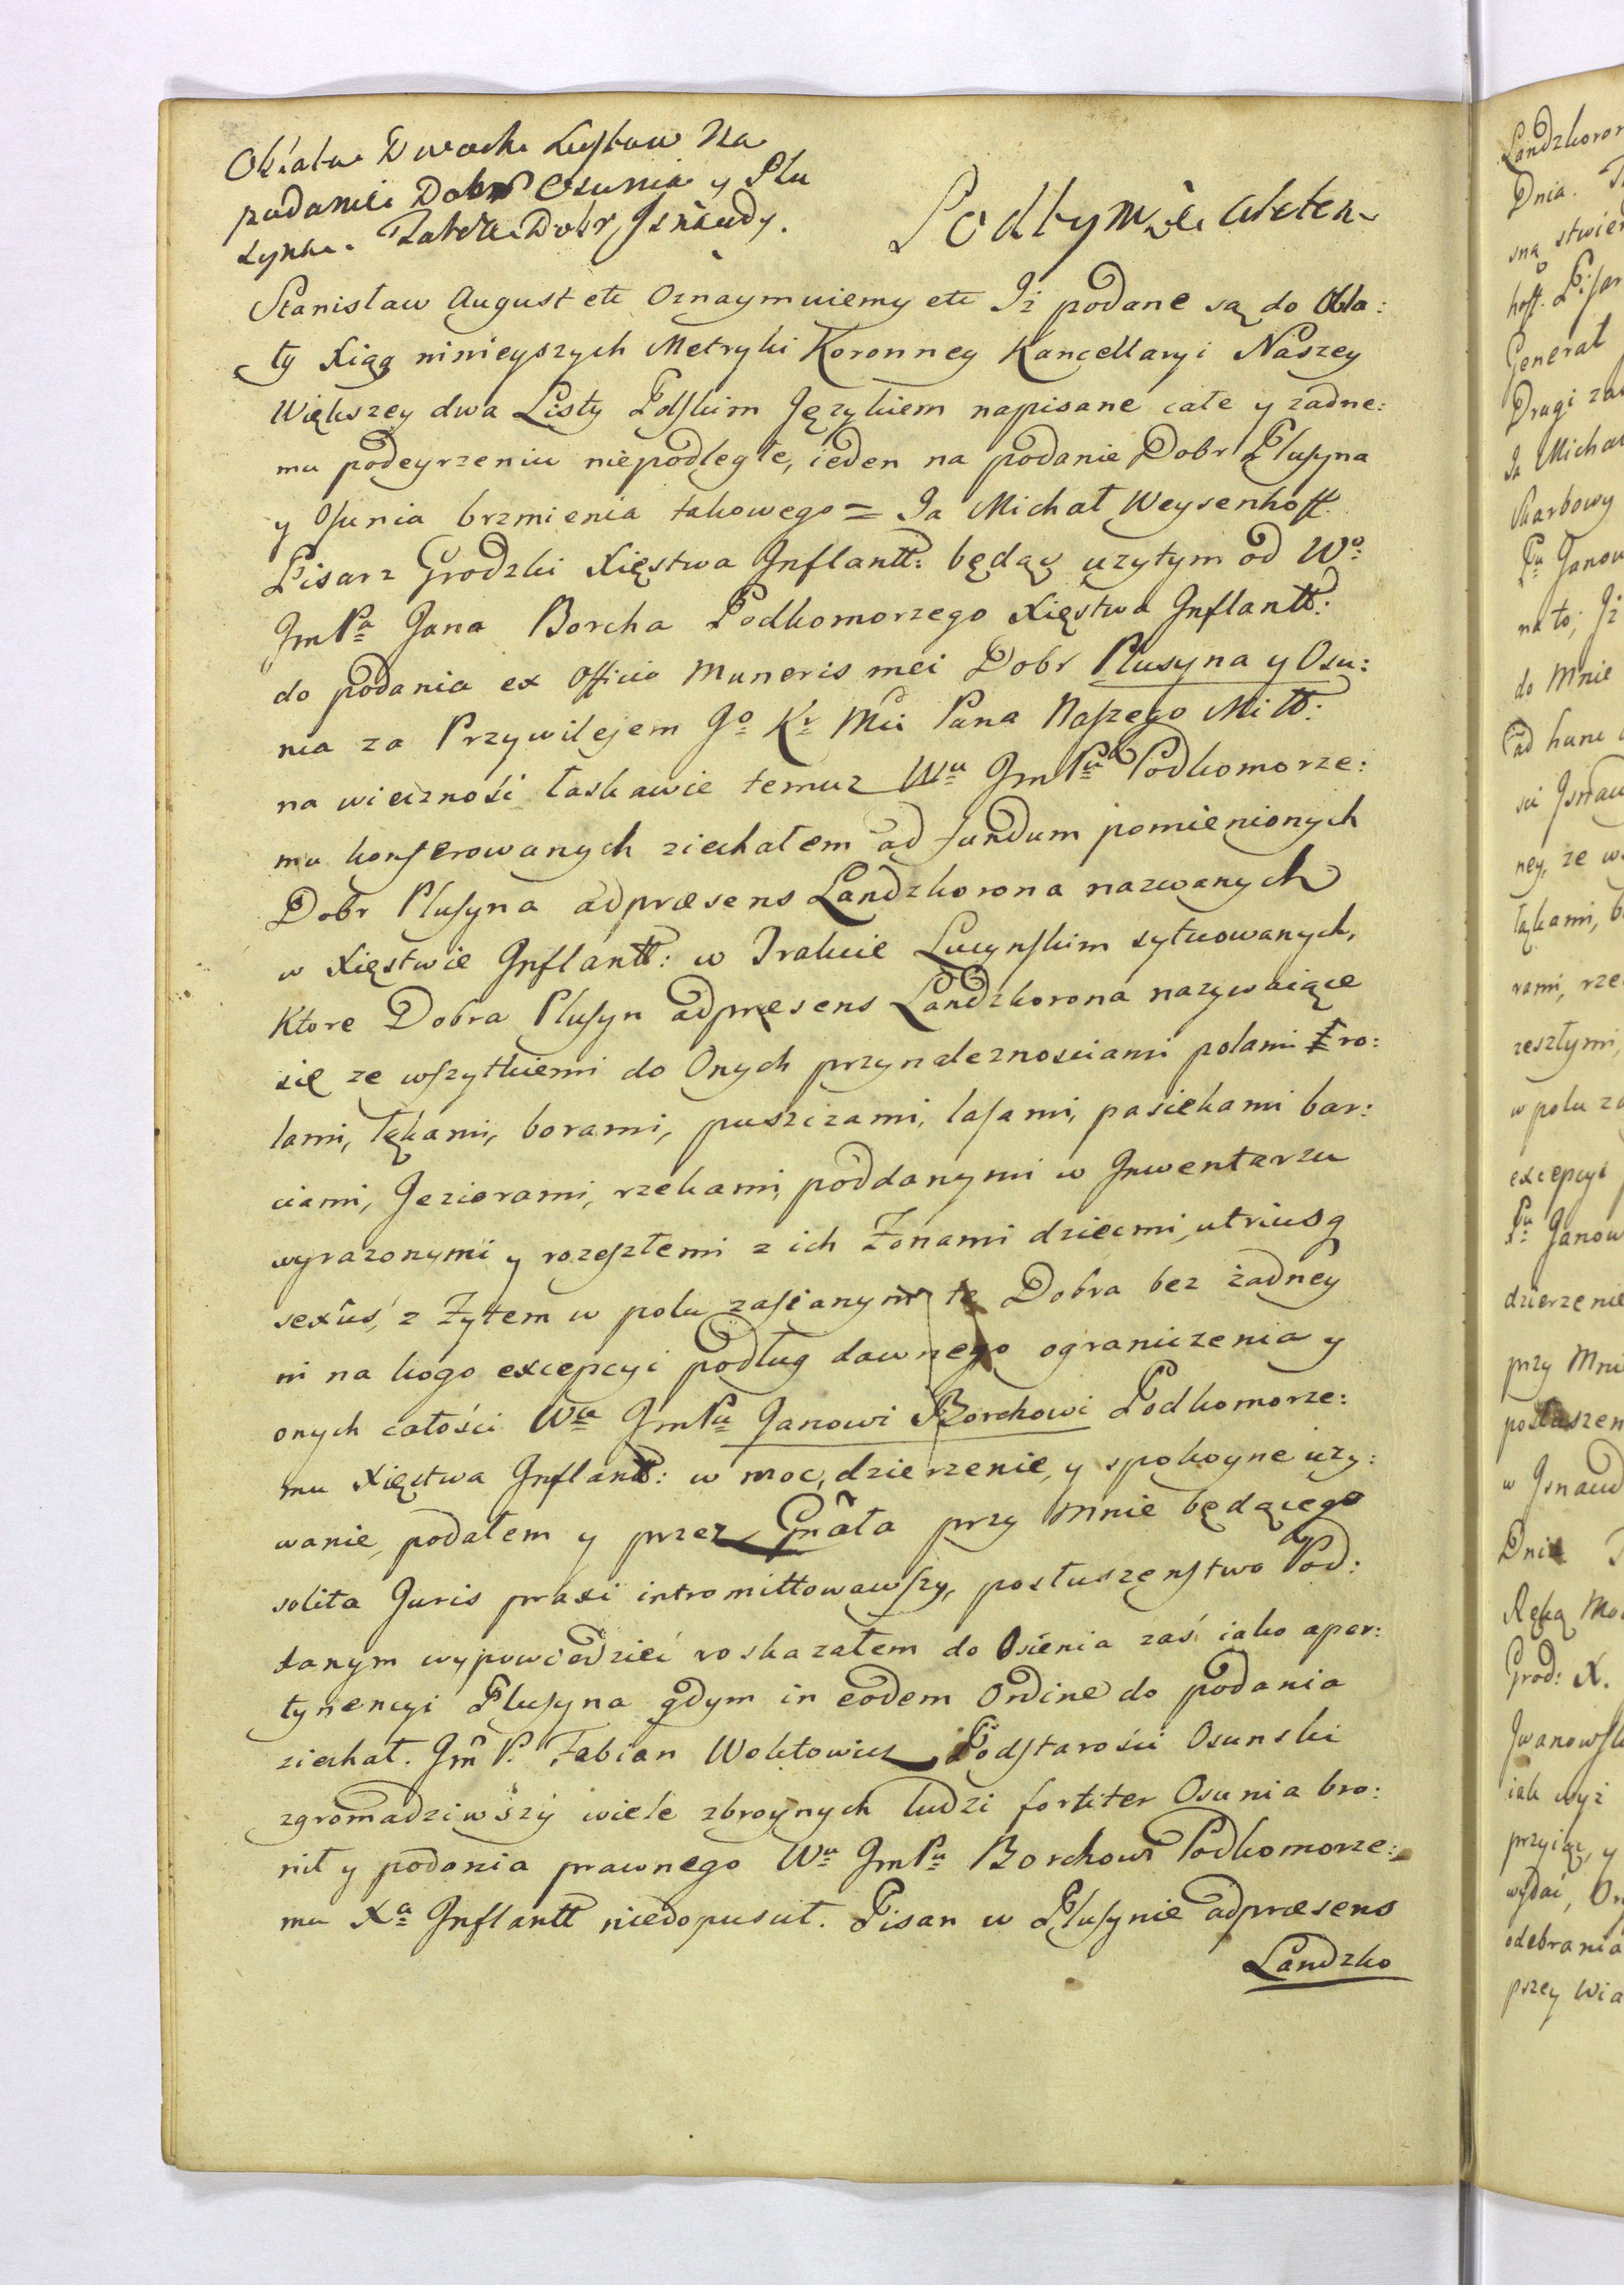 Oblata Dwoch Listow Na
podanie Dobr Osunia y Plu
synia. Także Dobr Isnaudy.
Podtymże aktem
Stanisław August etc Oznaymuiemy etc Iż podane są do Obla:
ty Xiąg ninieyszych Metryki Koronney Kancellaryi Naszey
Większey dwa Listy Polskim Językiem napisane całe y żadne:
mu podeyrzeniu niepodległe, ieden na podanie Dobr Plusyna
y Osunia brzmienia takowego = Ja Michał Weysenhoff
Pisarz Grodzki Xięstwa Inflantt: będąc użytym od Wo:
JmPa Jana Borcha Podkomorzego Xięstwa Inflantt:
do podania ex Officio Muneris mei Dobr Plusyna y Osu:
nia za Przywilejem Jo Kr Mci Pana Naszego Mitt:
na wieczności łaskawie temuz Wu JmPu Podkomorze:
mu konferowanych ziechałem ad fundum pomienionych
Dobr Plusyna adpræsens Landzkorona nazwanych
w Xięstwie Inflantt: w Trakcie Lucynskim sytuowanych,
Ktore Dobra Plusyn adpræsens Landzkorona nazywaiące
się ze wszytkiemi do Onych przynależnosciami polami ro:
lami, łąkami, borami, puszczami, lasami, pasiekami bar:
ciami, Jeziorami, rzekami, poddanymi w Inwentarzu
wyrażonymi y rozeszłemi z ich Żonami dziecmi, utriusq
sexûs, z Żytem w polu zasianym te Dobra bez żadney
ni na kogo excepcyi podług dawnego ograniczenia y
onych całości Wu JmPu Janowi Borchowi Podkomorze:
mu Xięstwa Inflantt: w moc, dzierzenie, y spokoyne uży:
wanie, podałem y przez Gnāła przy Mnie będącego
solita Juris praxi intromittowawszy, posłuszenstwo Pod:
danym wypowiedzieć roskazałem do Osienia zaś iako aper:
tynencyi Plusyna gdym in eodem Ordine do podania
ziechał. Jm P. Fabian Woktowicz Podstarości Osunski
zgromadziwszy wiele zbroynych ludzi fortiter Osunia bro:
nił y podania prawnego Wu JmPu Borchowi Podkomorze:
mu Xa Inflantt niedopuscił. Pisan w Plusynie adpræsens
Landzko
Landzkoron
Dnia
sną stwier
hoff. Pisar
Generał
Drugi
Ja Michał
Skarbowy
Pu Janow
na to, Iż
do Mnie
ad hunc
Isnau
ney, ze
łąkami, b
rami, rze
zeszłymi,
w polu za
excepcyi
Pu Janow
dzierzenie
przy Mni
posłuszen
w Isnaud
Dnia
Ręką Mo
Grod: X.
Iwanowsk
iak wyż
przyiąć, y
wydać, On
odebrania
pszey Wia